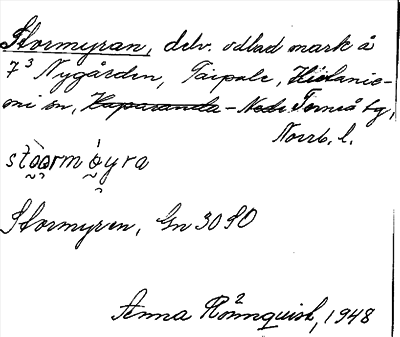 Stormyran, delv. odlad mark å
7³ Nygården, Taipale, Hietanie-
mi sn, Haparanda - Nedr Torneå tg,
Norrb. l.
Stormyren, Gn 3080
Anna Rönnquist, 1948